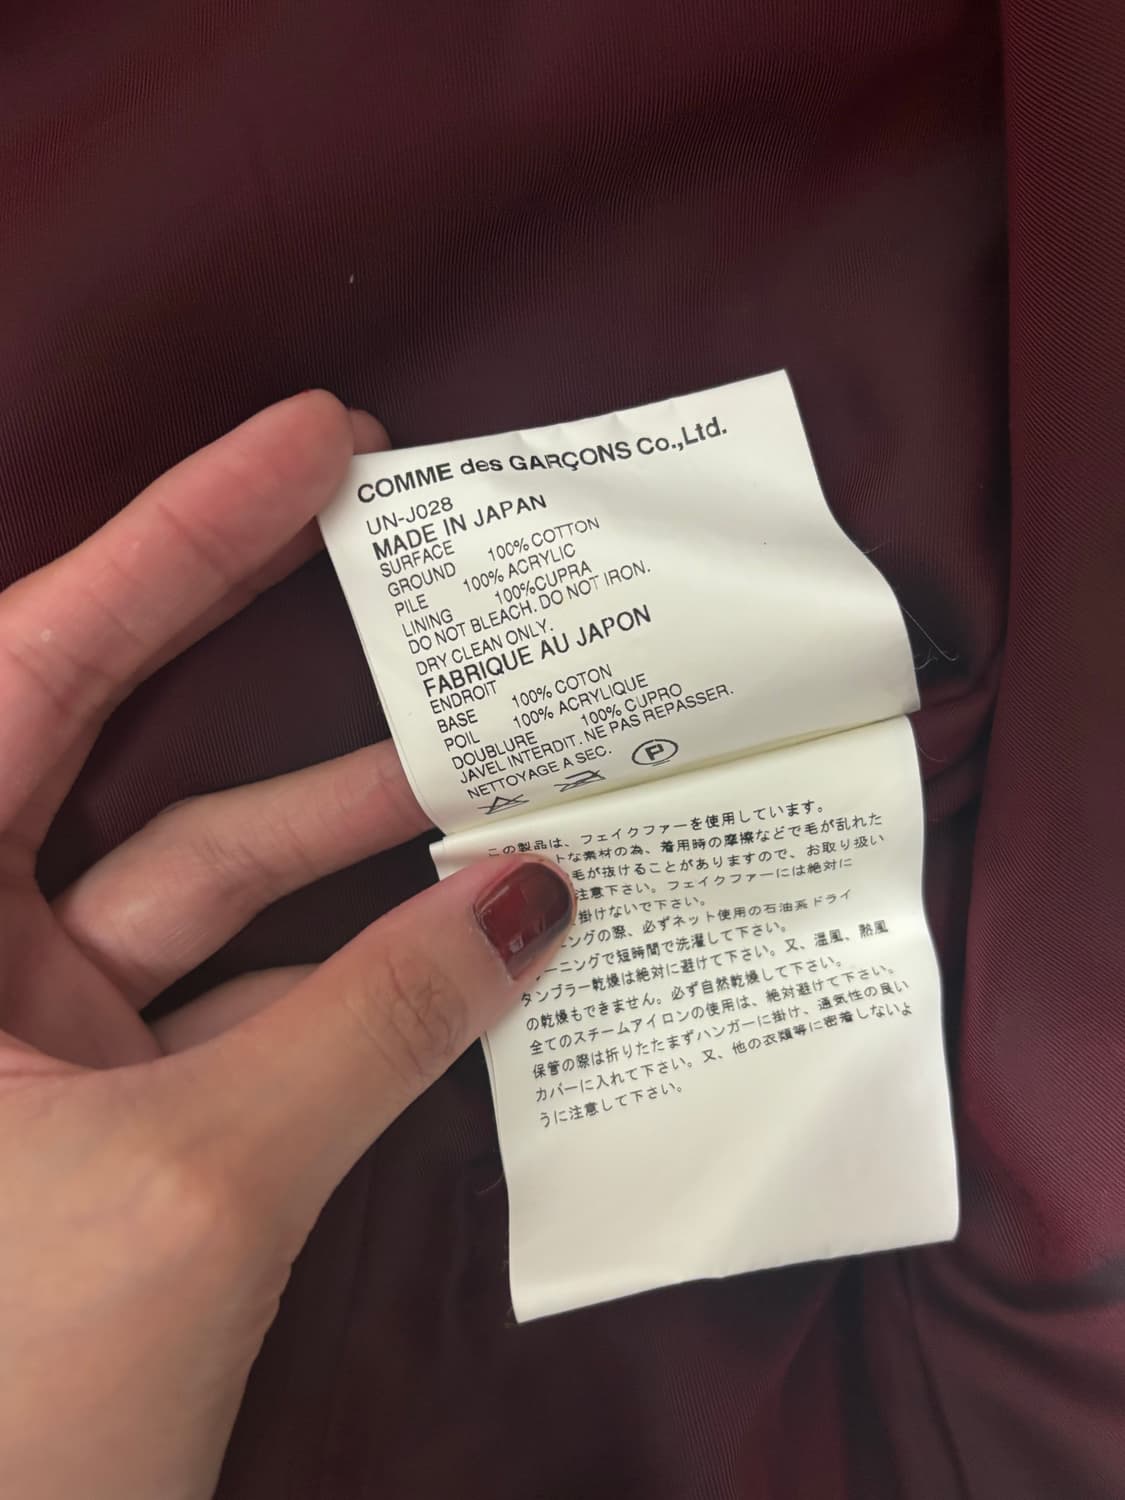 COMME des GARÇONS Co.,Ltd.
UN-J028
MADE IN JAPAN
SURFACE
GROUND 100% COTTON
PILE 100% ACRYLIC
LINING 100%CUPRA
DO NOT BLEACH. DO NOT IRON.
DRY CLEAN ONLY.
FABRIQUE AU JAPON
ENDROIT
BASE 100% COTON
POIL 100% ACRYLIQUE
DOUBLURE 100% CUPRO
JAVEL INTERDIT. NE PAS REPASSER.
NETTOYAGE A SEC.
P
この製品は、フェイクファーを使用しています。
トな素材の為、着用時の摩擦などで毛が乱れた
毛が抜けることがありますので、お取り扱い
注意下さい。フェイクファーには絶対に
掛けないで下さい。
ングの際、必ずネット使用の石油系ドライ
ーニングで短時間で洗濯して下さい。
タンブラー乾燥は絶対に避けて下さい。又、温風、熱風
の乾燥もできません。必ず自然乾燥して下さい。
全てのスチームアイロンの使用は、絶対避けて下さい。
保管の際は折りたたまずハンガーに掛け、通気性の良い
カバーに入れて下さい。又、他の衣類等に密着しないよ
うに注意して下さい。